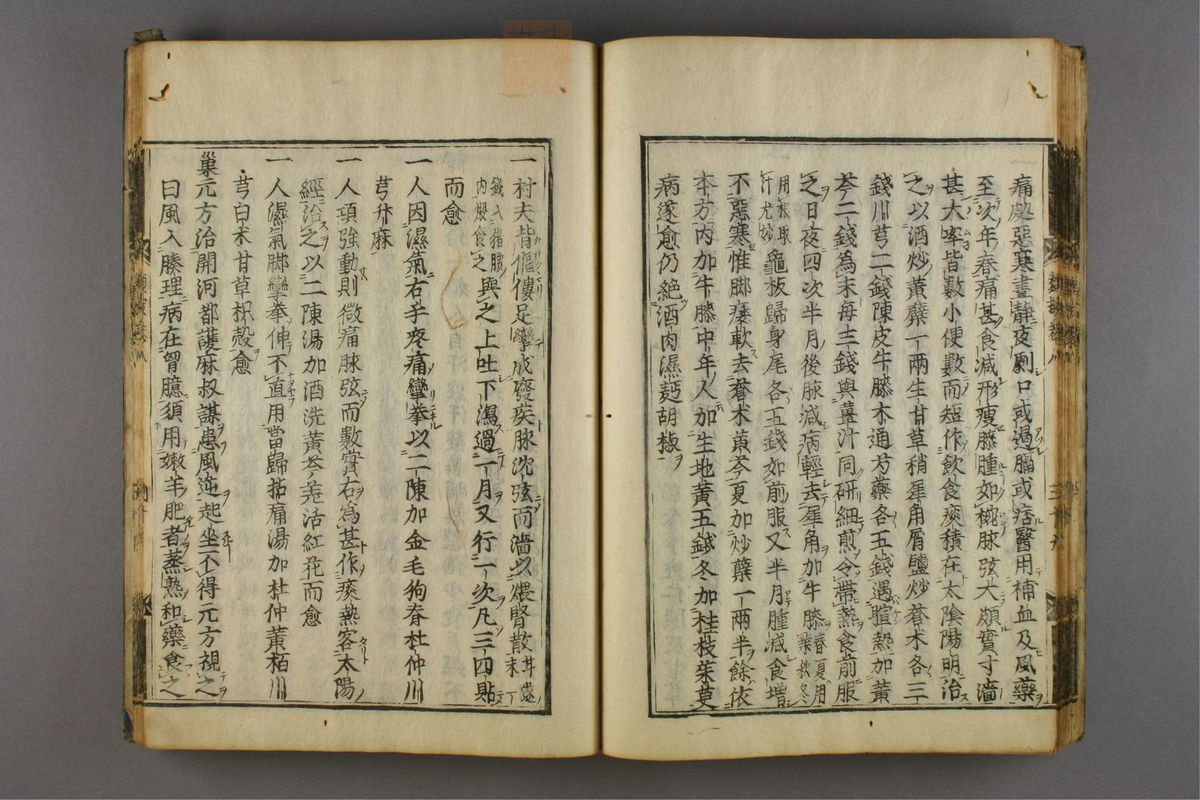 痛處惡寒晝靜夜劇口或過膈或痞醫用補血及風藥
至次年春痛甚食減形瘦膝腫如椀脉弦大頗實寸濇
甚大率皆數小便數而短作飲食痰積在太陰陽明治
之以酒炒黃蘗一兩生甘草稍犀角屑鹽炒蒼术各三
錢川芎二錢陳皮牛膝木通芍藥各五錢遇暄熱加黃
芩二錢為末每三錢與薑汁同研細煎令帶熱食前服
之日夜四次半月後脉減病輕去犀角加牛膝春夏用葉秋冬
用根取汁尤妙龜板歸身尾各五錢如前服又半月腫減食增
不惡寒惟脚痿軟去蒼术黃芩夏加炒蘗一兩半餘依
本方内加牛膝中年人加生地黃五錢冬加桂枝茱萸
病遂愈仍絶酒肉濕麪胡椒
一村夫背傴僂足攣成廢疾脉沈弦而濇以煨腎散甘遂末
錢入猪腰内煨食之與之上吐下瀉過一月又行一次凡三四貼
而愈
一人因濕氣右手疼痛攣拳以二陳加金毛狗脊杜仲川
芎升麻
一人項強動則微痛脉弦而數實右為甚作痰熱客太陽
經治之以二陳湯加酒洗黃芩羗活紅花而愈
一人濕氣脚攣拳伸不直用當歸拈痛湯加杜仲黃栢川
芎白术甘草枳殻愈
巢元方治開河都護麻叔謀患風逆起坐不得元方視之
曰風入腠理病在胷臆須用嫩羊肥者蒸熟和藥食之